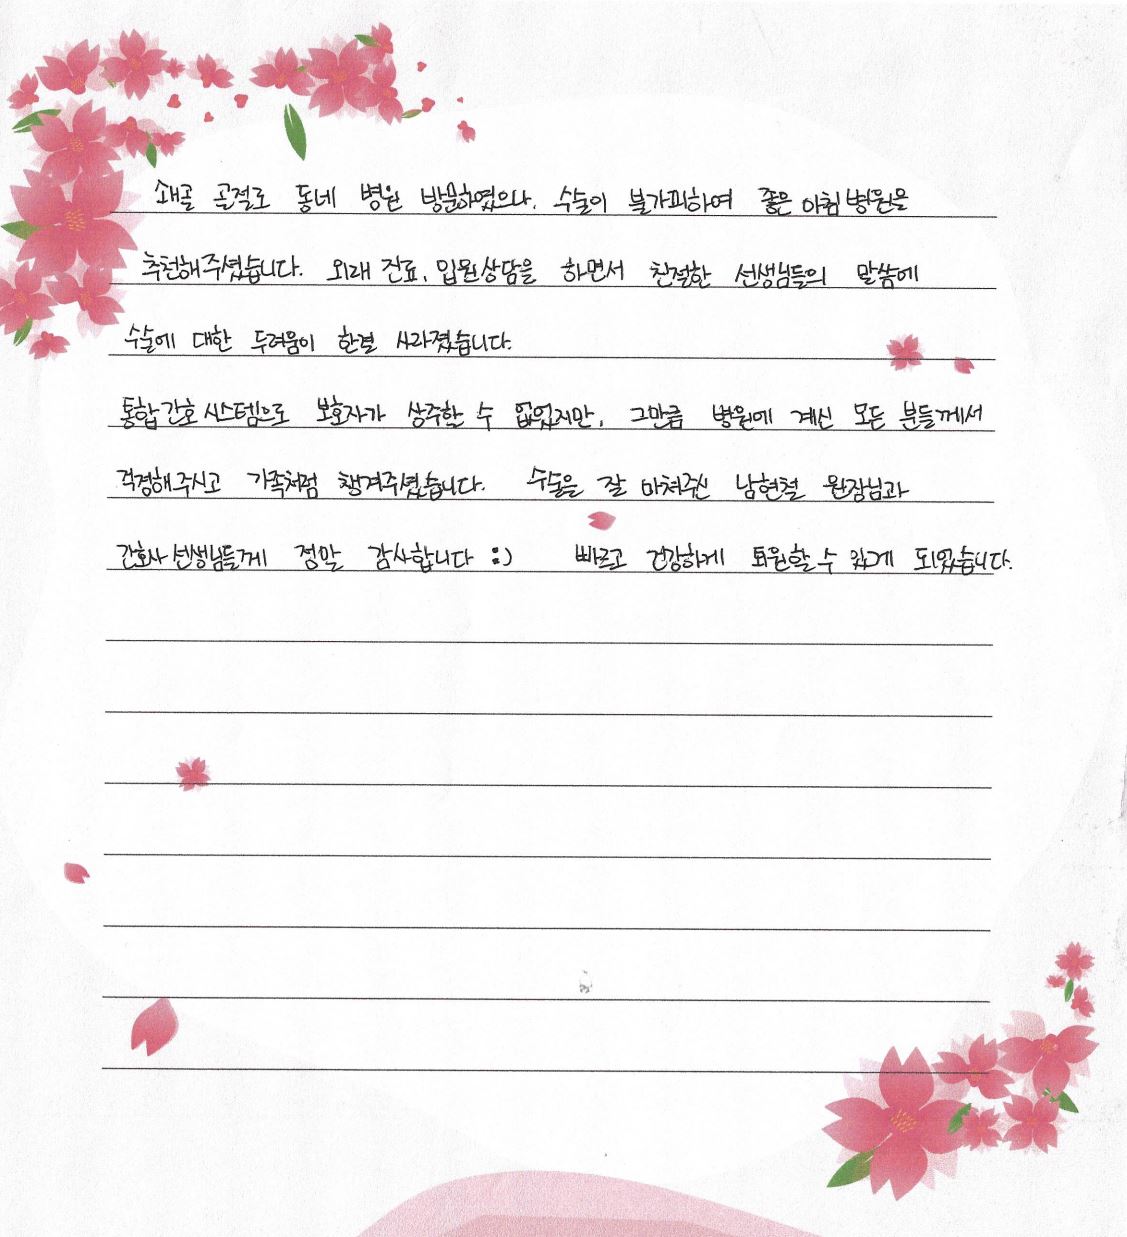 쇄골 골절로 동네 병원 방문하였으나, 수술이 불가피하여 좋은아침병원을
추천해주셨습니다. 외래 진료, 입원상담을 하면서 친절한 선생님들의 말씀에
수술에 대한 두려움이 한결 사라졌습니다.
통합간호시스템으로 보호자가 상주할 수 없었지만, 그만큼 병원에 계신 모든 분들께서
걱정해주시고 가족처럼 챙겨주셨습니다. 수술을 잘 마쳐주신 남현철 원장님과
간호사 선생님들께 정말 감사합니다 :) 빠르고 건강하게 퇴원할 수 있게 되었습니다.